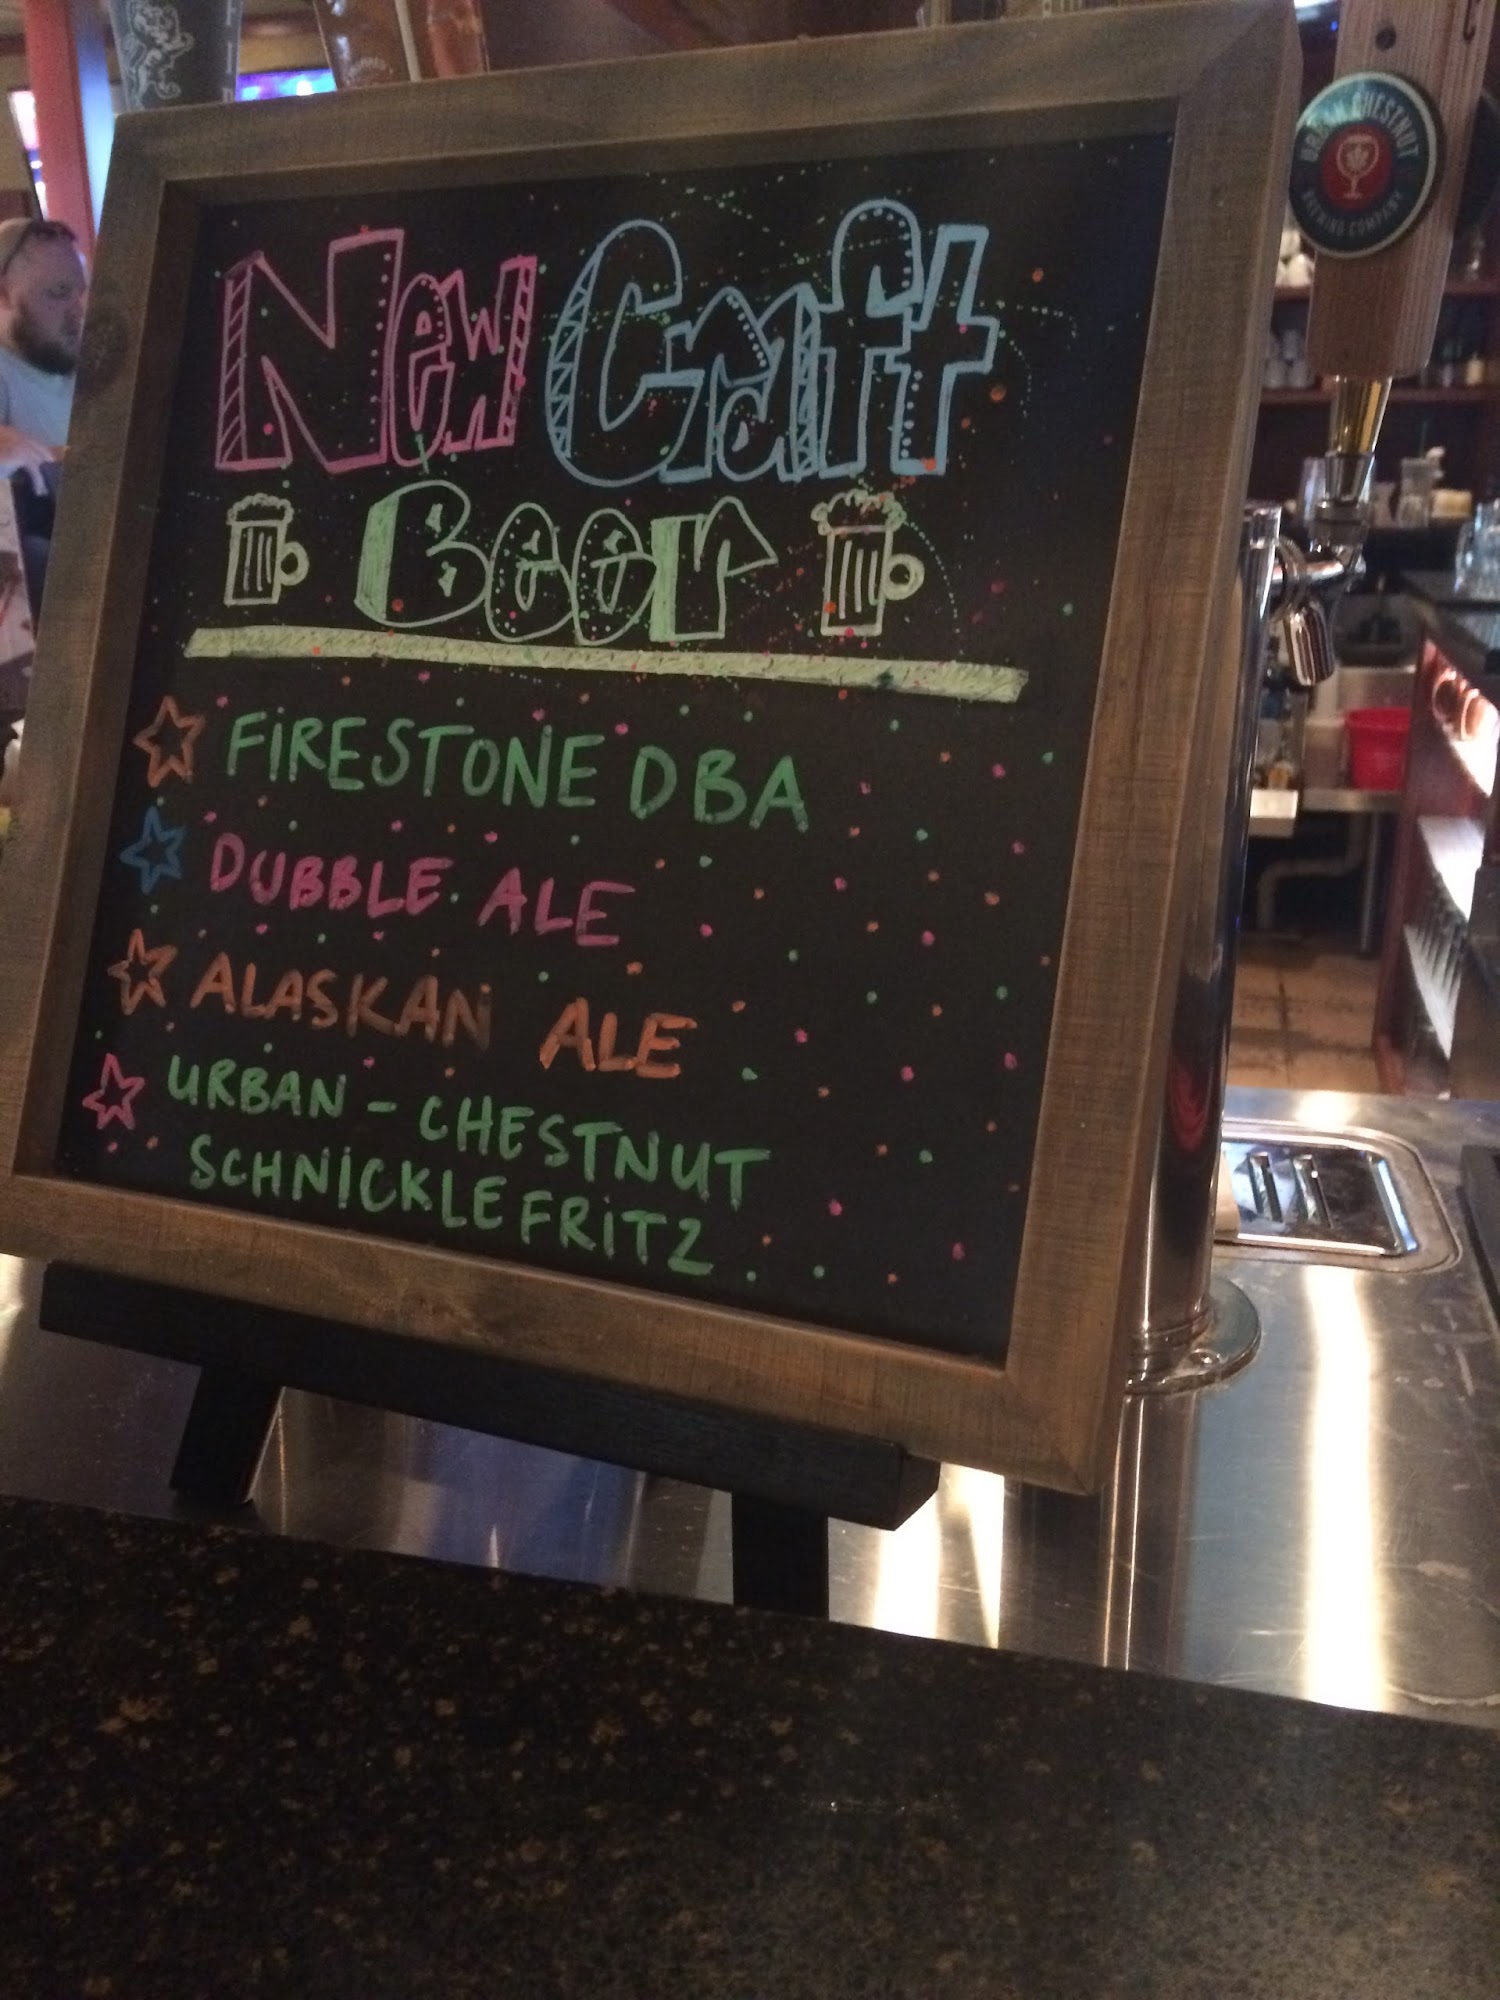 New Craft
Beer
FIRESTONE DBA
DUBBLE ALE
ALASKAN ALE
URBAN - CHESTNUT
SCHNICKLEFRITZ
URBAN CHESTNUT
BREWING COMPANY